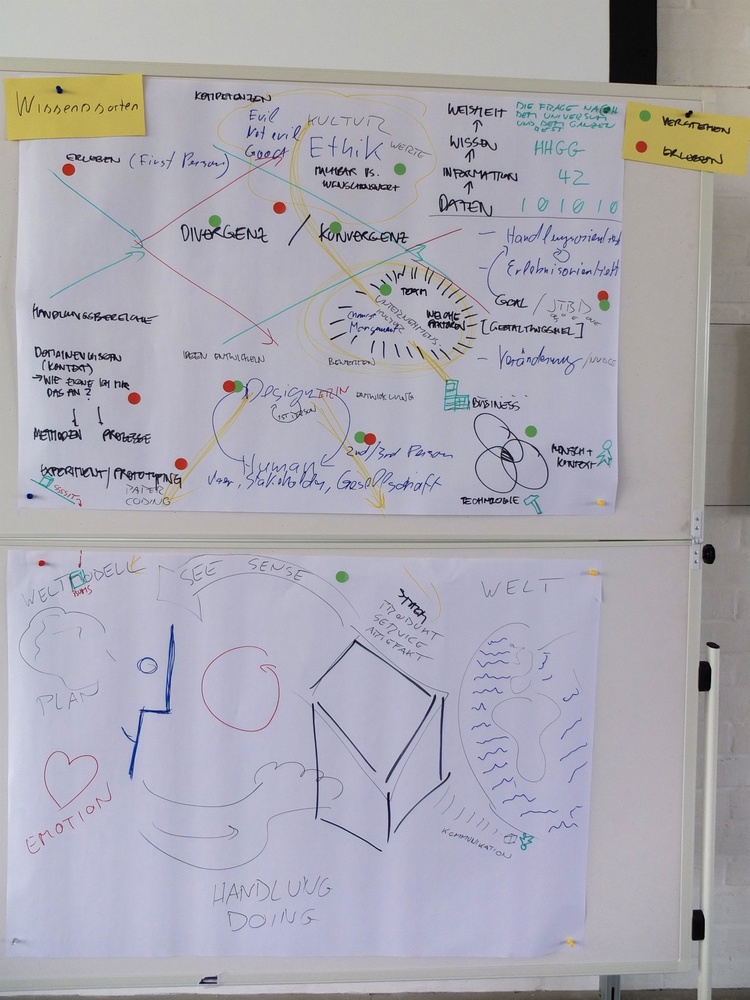 Wissenssorten
KOMPETENZEN
Evil
Not evil
Good
KULTUR
Ethik
WERTE
MACHBAR VS.
WÜNSCHENSWERT
WEISHEIT
WISSEN
INFORMATION
DATEN
DIE FRAGE NACH
DEM UNIVERSUM
UND DEM GANZEN
REST
HHGG
42
101010
VERSTEHEN
ERLEBEN
ERLEBEN (First Person)
DIVERGENZ / KONVERGENZ
- Handlungsorientiert
- Erlebnisorientiert
GOAL / JTBD
[GESTALTUNGSZIEL]
- Veränderung
TEAM
UNTERNEHMENS
Change
Management
WELCHE
HANDLUNGSBEREICHE
DOMAINENWISSEN
(KONTEXT)
→ WIE EIGNE ICH MIR
DAS AN?
METHODEN
PROZESSE
EXPERIMENT/PROTOTYPING
PAPER
CODING
IDEEN ENTWICKELN
BEWERTEN
ENTWICKLUNG
DesignERIN
1ST PERSON
2nd/3rd Person
Human
User, Stakeholder, Gesellschaft
BUSINESS
MENSCH +
KONTEXT
TECHNOLOGIE
WELTMODELL
SEE SENSE
SYSTEM
PRODUKT
SERVICE
ARTEFAKT
WELT
PLAN
EMOTION
KOMMUNIKATION
HANDLUNG
DOING